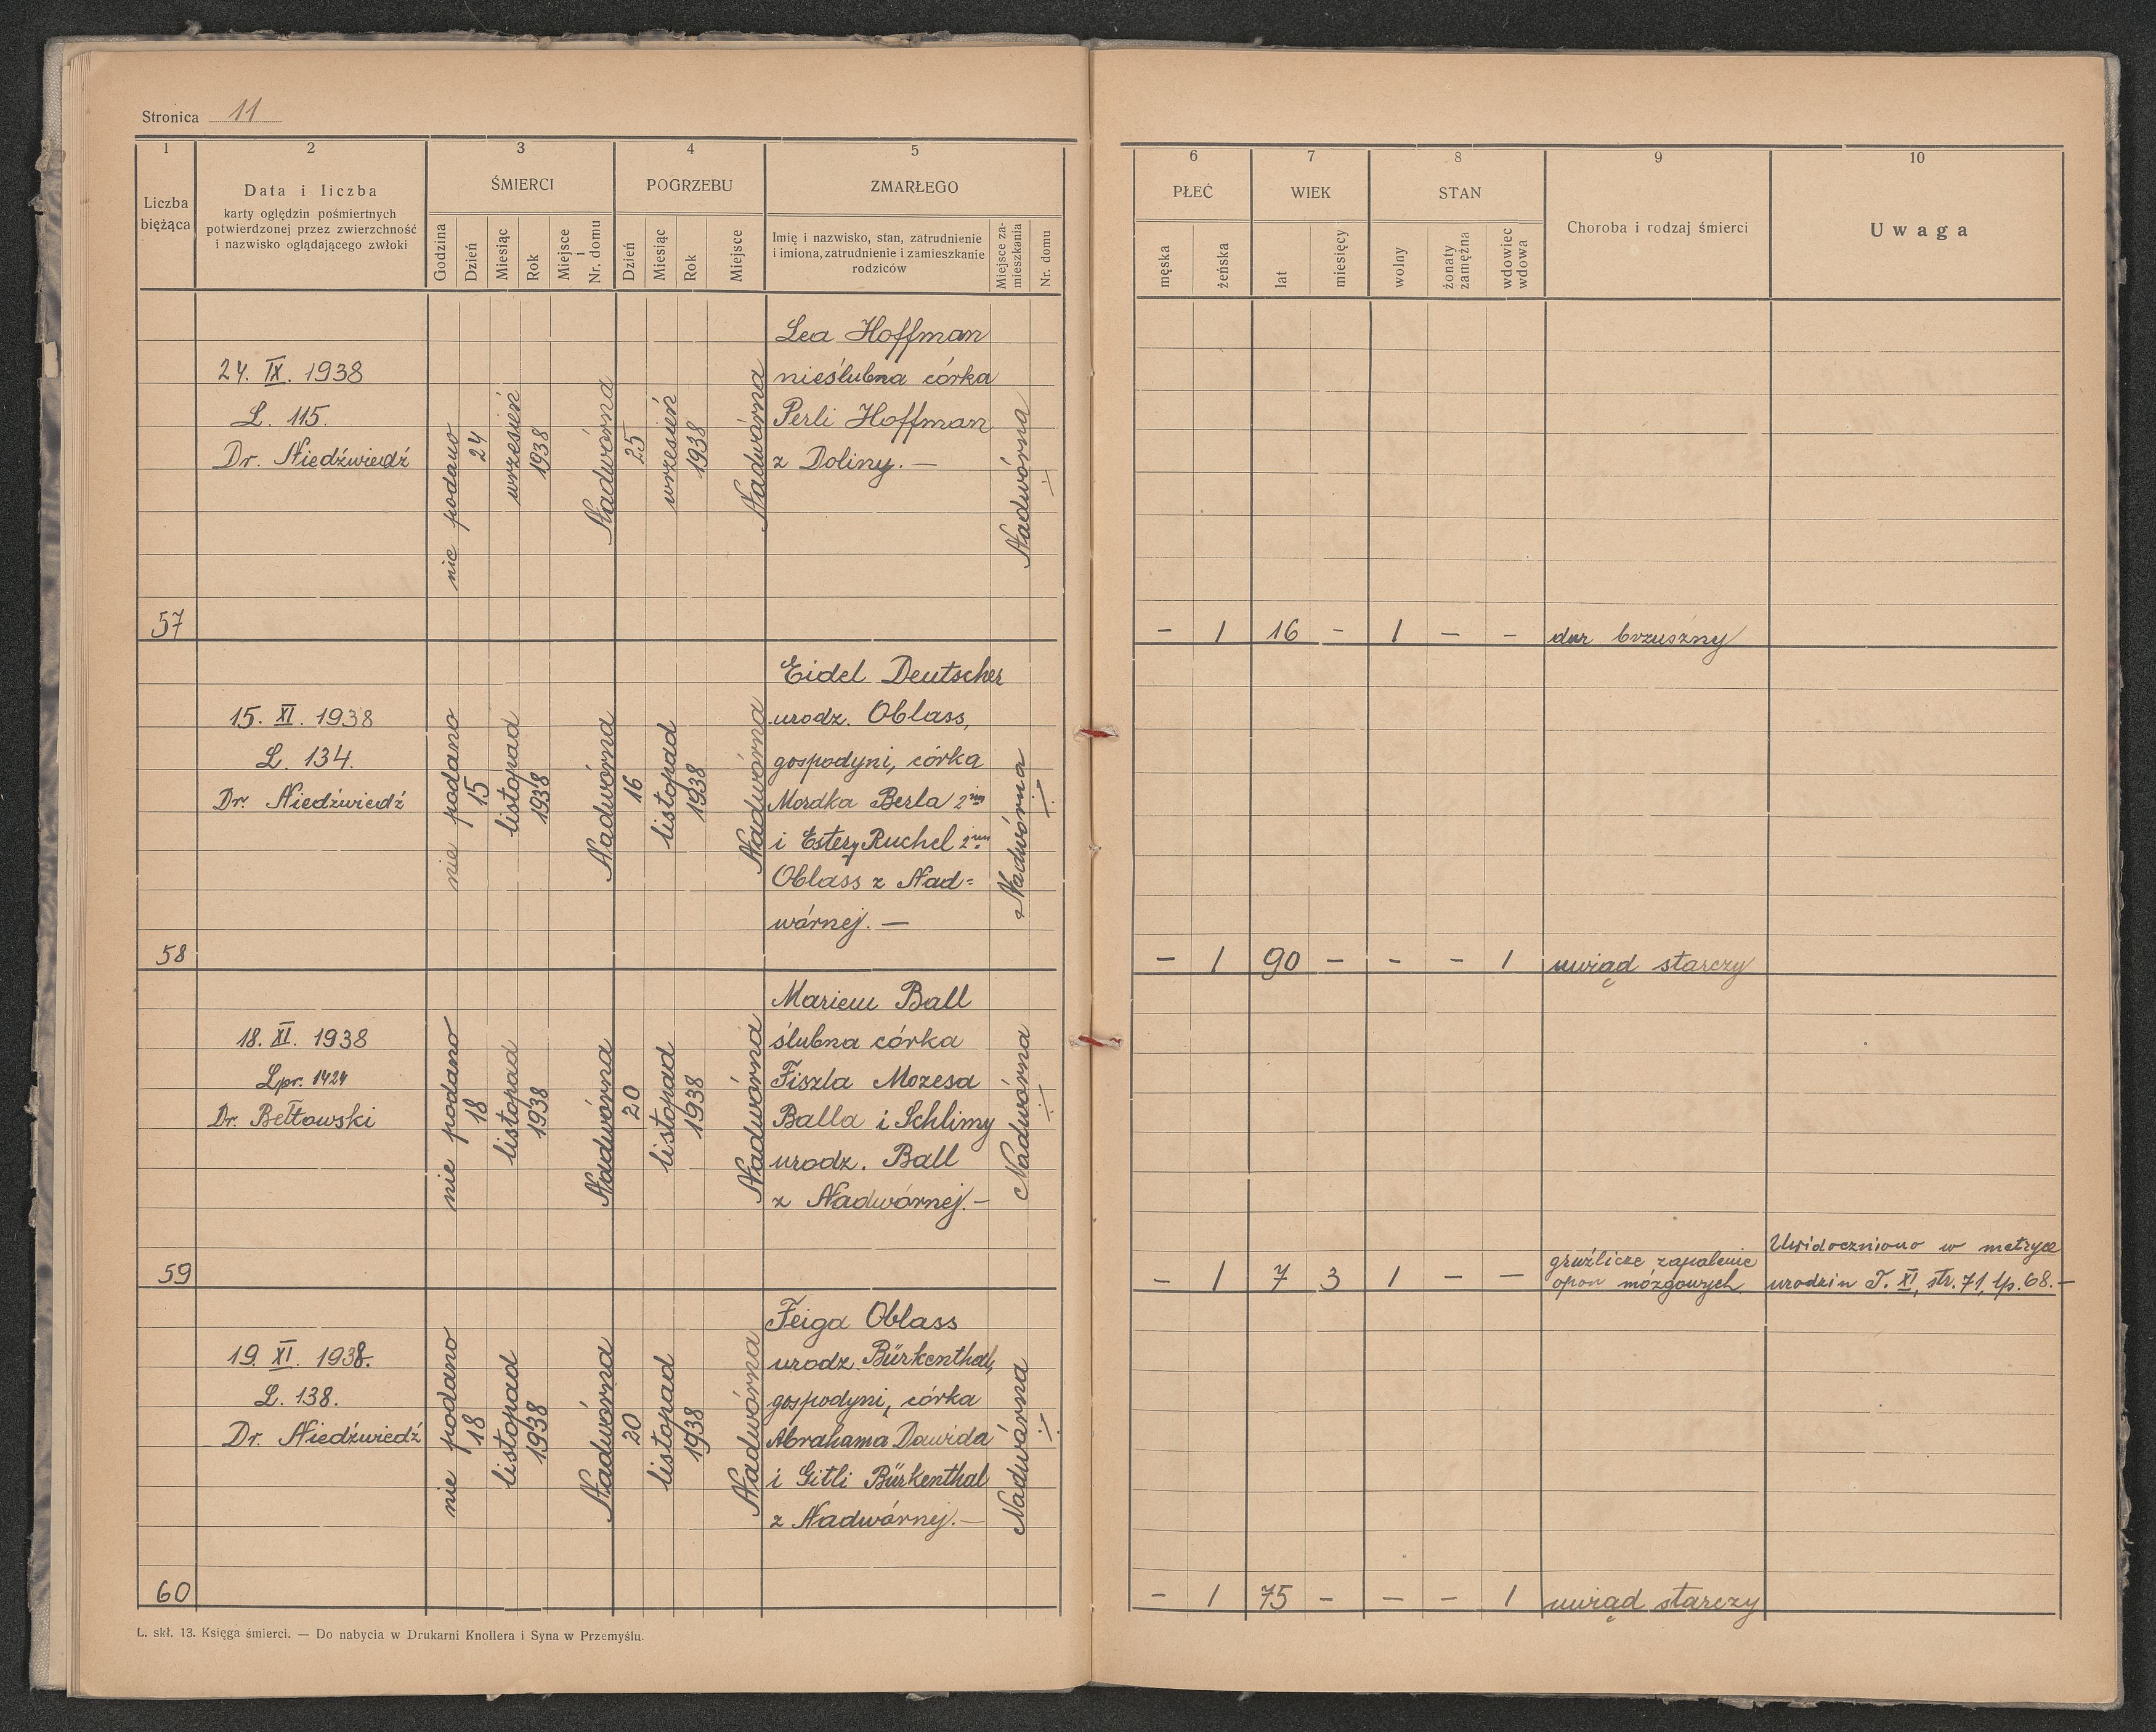 Stronica 11
1
2
3
4
5
Liczba
bieżąca
Data i liczba
karty oględzin pośmiertnych
potwierdzonej przez zwierzchność
i nazwisko oglądającego zwłoki
ŚMIERCI
Godzina
Dzień
Miesiąc
Rok
Miejsce
i
Nr. domu
POGRZEBU
Dzień
Miesiąc
Rok
Miejsce
ZMARŁEGO
Imię i nazwisko, stan, zatrudnienie
i imiona, zatrudnienie i zamieszkanie
rodziców
Miejsce za-
mieszkania
Nr. domu
6
7
8
9
10
PŁEĆ
męska
żeńska
WIEK
lat
miesięcy
STAN
wolny
żonaty
zamężna
wdowiec
wdowa
Choroba i rodzaj śmierci
Uwaga
57
24. IX. 1938
L. 115.
Dr. Niedźwiedź
nie podano
24
wrzesień
1938
Nadwórna
25
wrzesień
1938
Nadwórna
Lea Hoffman
nieślubna córka
Perli Hoffman
z Doliny. —
Nadwórna
- 1 16 - 1 - -
dur brzuszny
58
15. XI. 1938
L. 134.
Dr. Niedźwiedź
nie podano
15
listopad
1938
Nadwórna
16
listopad
1938
Nadwórna
Eidel Deutscher
urodz. Oblass,
gospodyni, córka
Mordka Berla 2im
i Estery Ruchel 2im
Oblass z Nad=
wórnej. —
Nadwórna
- 1 90 - - - 1
uwiąd starczy
59
18. XI. 1938
Lpr. 1424
Dr. Bełtowski
nie podano
18
listopad
1938
Nadwórna
20
listopad
1938
Nadwórna
Mariem Ball
ślubna córka
Fiszla Mozesa
Balla i Schlimy
urodz. Ball
z Nadwórnej. -
Nadwórna
- 1 7 3 1 - -
gruźlicze zapalenie
opon mózgowych
Uwidoczniono w metryce
urodzin T. XI, str. 71, lp. 68. -
60
19. XI. 1938.
L. 138.
Dr. Niedźwiedź
nie podano
18
listopad
1938
Nadwórna
20
listopad
1938
Nadwórna
Feiga Oblass
urodz. Bürkenthal,
gospodyni, córka
Abrahama Dawida
i Gitli Bürkenthal
z Nadwórnej. —
Nadwórna
- 1 75 - - - 1
uwiąd starczy
L. skł. 13. Księga śmierci. — Do nabycia w Drukarni Knollera i Syna w Przemyślu.